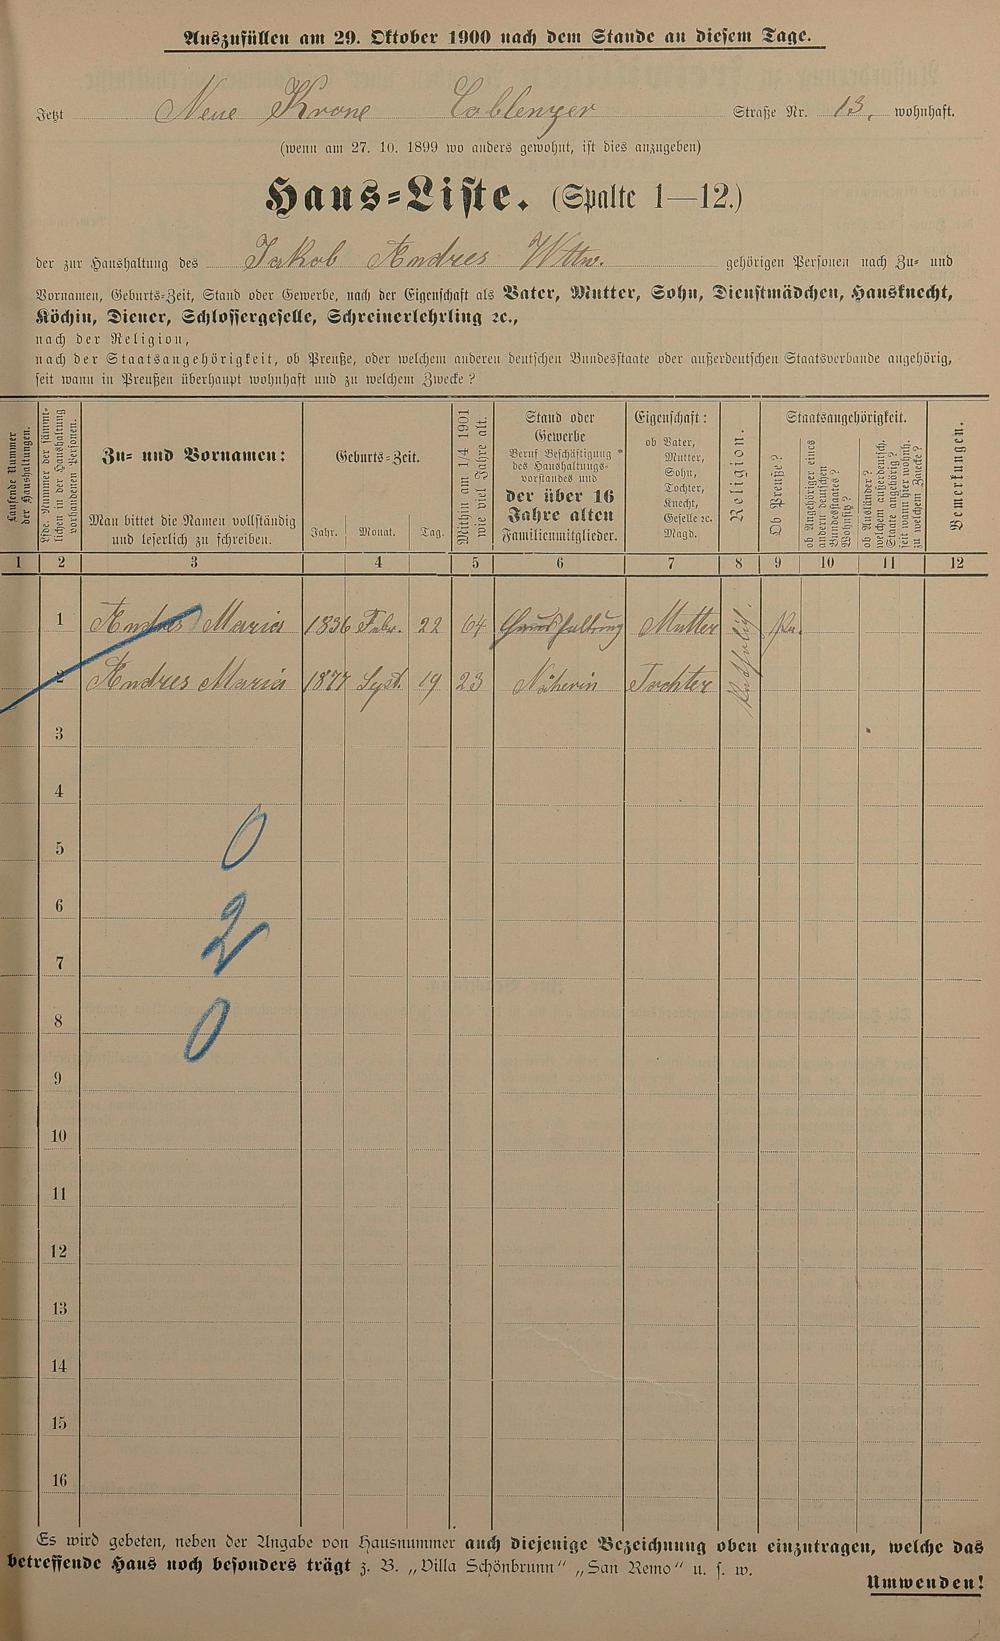 Auszufüllen am 29. Oktober 1900 nach dem Stande an diesem Tage.
Jetzt Neue Krone Coblenzer Straße Nr. 13, wohnhaft.
(wenn am 27. 10. 1899 wo anders gewohnt, ist dies anzugeben)
Haus-Liste. (Spalte 1—12.)
der zur Haushaltung des Jakob Andres Wttw. gehörigen Personen nach Zu- und
Vornamen, Geburts-Zeit, Stand oder Gewerbe, nach der Eigenschaft als Vater, Mutter, Sohn, Dienstmädchen, Hausknecht,
Köchin, Diener, Schlossergeselle, Schreinerlehrling ꝛc.,
nach der Religion,
nach der Staatsangehörigkeit, ob Preuße, oder welchem anderen deutschen Bundesstaate oder außerdeutschen Staatsverbande angehörig,
seit wann in Preußen überhaupt wohnhaft und zu welchem Zwecke?
Laufende Nummer
der Haushaltungen.
Lfde. Nummer der sämmt-
lichen in der Haushaltung
vorhandenen Personen.
Zu- und Vornamen:
Man bittet die Namen vollständig
und leserlich zu schreiben.
Geburts-Zeit.
Jahr. Monat. Tag.
Mithin am 1/4 1901
wie viel Jahre alt.
Stand oder
Gewerbe
Beruf Beschäftigung
des Haushaltungs-
vorstandes und
der über 16
Jahre alten
Familienmitglieder.
Eigenschaft:
ob Vater,
Mutter,
Sohn,
Tochter,
Knecht,
Geselle ꝛc.
Magd.
Religion.
Staatsangehörigkeit.
Ob Preuße?
ob Angehöriger eines
andern deutschen
Bundesstaates?
Wohnsitz?
ob Ausländer?
welchem außerdeutsch.
Staate angehörig?
seit wann hier wohnh.
zu welchem Zwecke?
Bemerkungen.
1 2 3 4 5 6 7 8 9 10 11 12
1 Andres Maria 1836 Febr. 22 64 Haushaltung Mutter Katholisch. Pr.
2 Andres Maria 1877 Sept. 19 23 Näherin Tochter
3
4
5
6
7
8
9
10
11
12
13
14
15
16
0
2
0
Es wird gebeten, neben der Angabe von Hausnummer auch diejenige Bezeichnung oben einzutragen, welche das
betreffende Haus noch besonders trägt z. B. „Villa Schönbrunn“ „San Remo“ u. s. w.
Umwenden!